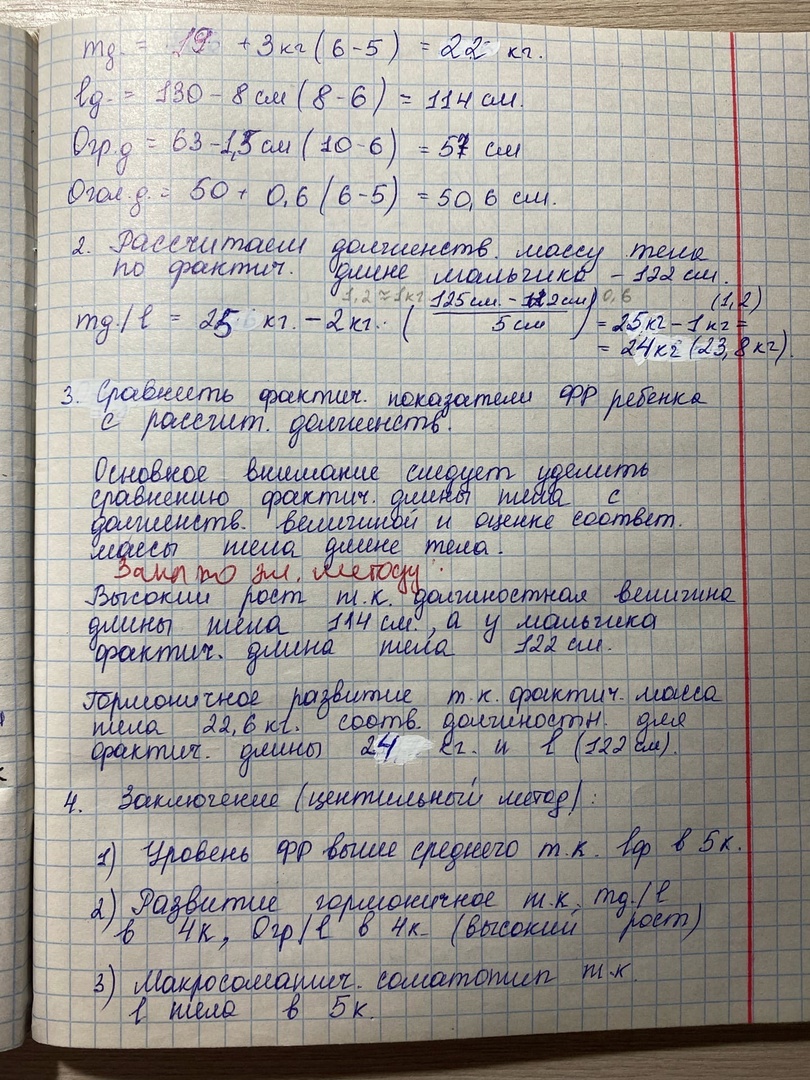 mд. = 19 + 3 кг (6-5) = 22 кг.
lд. = 130 - 8 см (8-6) = 114 см.
Огр.д = 63 - 1,5 см (10-6) = 57 см
Огол.д. = 50 + 0,6 (6-5) = 50,6 см.
2. Рассчитаем долженств. массу тела
по фактич. длине мальчика - 122 см.
1,2 ≈ 1 кг 125 см. - 122 см 0,6 (1,2)
mд./l = 25 кг. - 2 кг. ( 5 см ) = 25 кг - 1 кг =
= 24 кг (23,8 кг).
3. Сравнить фактич. показатели ФР ребенка
с рассчит. долженств.
Основное внимание следует уделить
сравнению фактич. длины тела с
долженств. величиной и оценке соответ.
массы тела длине тела.
Закл по эм. методу:
Высокий рост т.к. должностная величина
длины тела 114 см, а у мальчика
фактич. длина тела 122 см.
Гормоничное развитие т.к. фактич. масса
тела 22,6 кг. соотв. должностн. для
фактич. длины 24 кг. и l (122 см).
4. Заключение (центильный метод):
1) Уровень ФР выше среднего т.к. lф в 5к.
2) Развитие гормоничное т.к. mд./l
в 4к, Огр/l в 4к (высокий рост)
3) Макросоматич. соматотип т.к.
l тела в 5к.